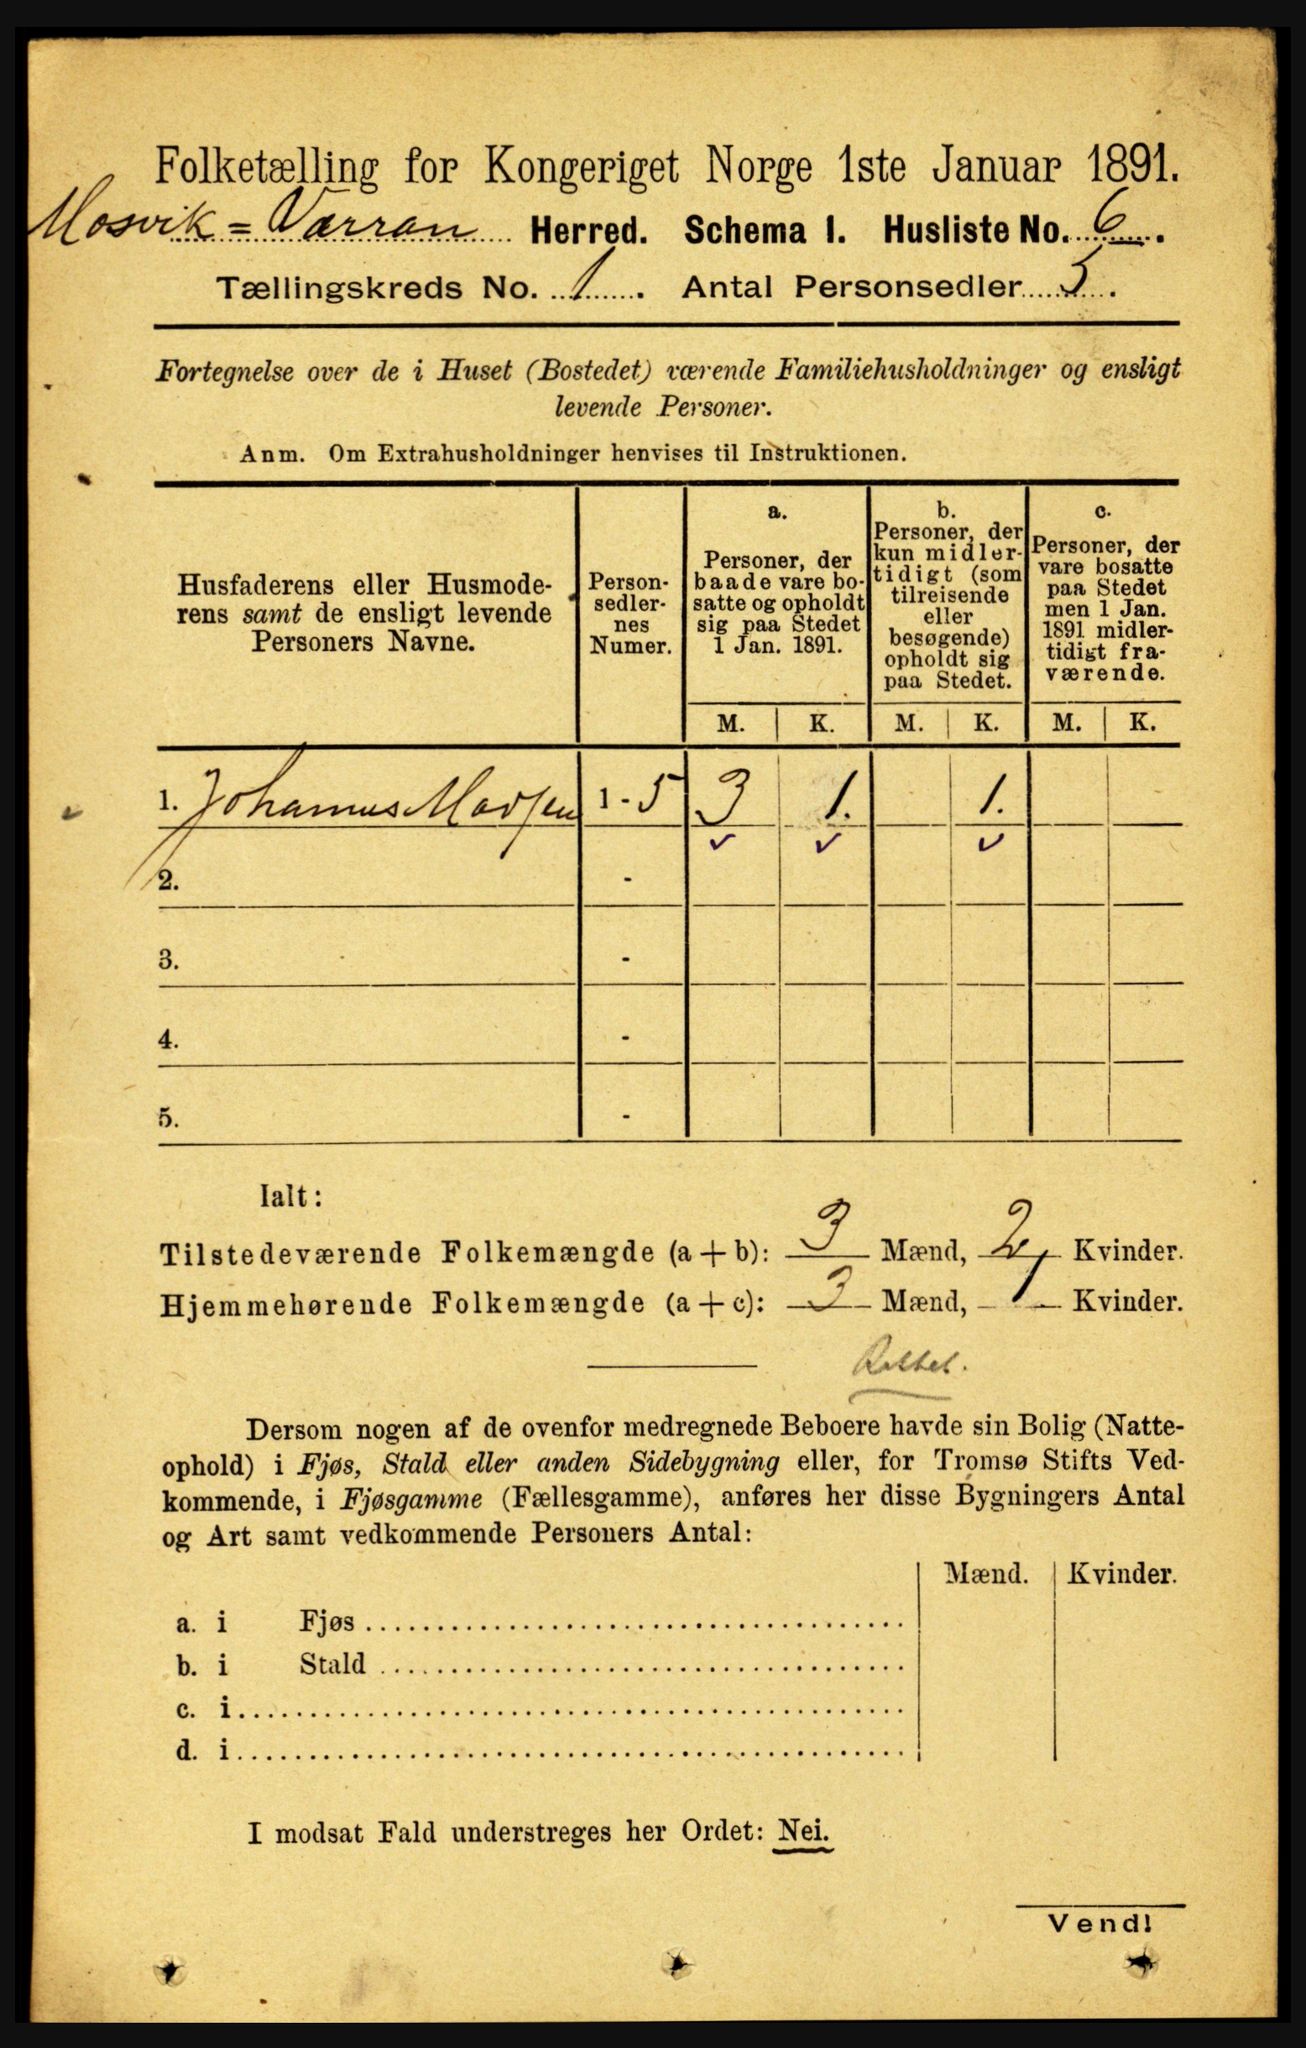 Folketælling for Kongeriget Norge 1ste Januar 1891.
Mosvik = Værran Herred. Schema I. Husliste No. 6.
Tællingskreds No. 1. Antal Personsedler 5.
Fortegnelse over de i Huset (Bostedet) værende Familiehusholdninger og ensligt
levende Personer.
Anm. Om Extrahusholdninger henvises til Instruktionen.
Husfaderens eller Husmode-
rens samt de ensligt levende
Personers Navne.
Person-
sedler-
nes
Numer.
a.
Personer, der
baade vare bo-
satte og opholdt
sig paa Stedet
1 Jan. 1891.
b.
Personer, der
kun midler-
tidigt (som
tilreisende
eller
besøgende)
opholdt sig
paa Stedet.
c.
Personer, der
vare bosatte
paa Stedet
men 1 Jan.
1891 midler-
tidigt fra-
værende.
M. K. M. K. M. K.
1. Johannes Madsen 1 - 5 3 1. 1.
2. -
3. -
4. -
5. -
Ialt:
Tilstedeværende Folkemængde (a + b): 3 Mænd, 2 Kvinder.
Hjemmehørende Folkemængde (a + c): 3 Mænd, 1 Kvinder.
Dersom nogen af de ovenfor medregnede Beboere havde sin Bolig (Natte-
ophold) i Fjøs, Stald eller anden Sidebygning eller, for Tromsø Stifts Ved-
kommende, i Fjøsgamme (Fællesgamme), anføres her disse Bygningers Antal
og Art samt vedkommende Personers Antal:
Mænd. Kvinder.
a. i Fjøs
b. i Stald
c. i
d. i
I modsat Fald understreges her Ordet: Nei.
Vend!